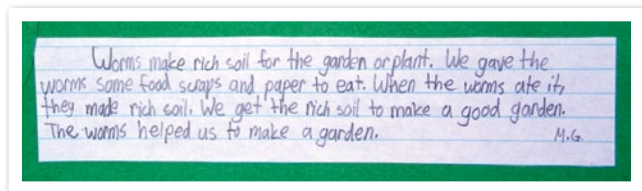 Worms make rich soil for the garden or plant. We gave the
worms some food scraps and paper to eat. When the worms ate it,
they made rich soil. We get the rich soil to make a good garden.
The worms helped us to make a garden. M.G.